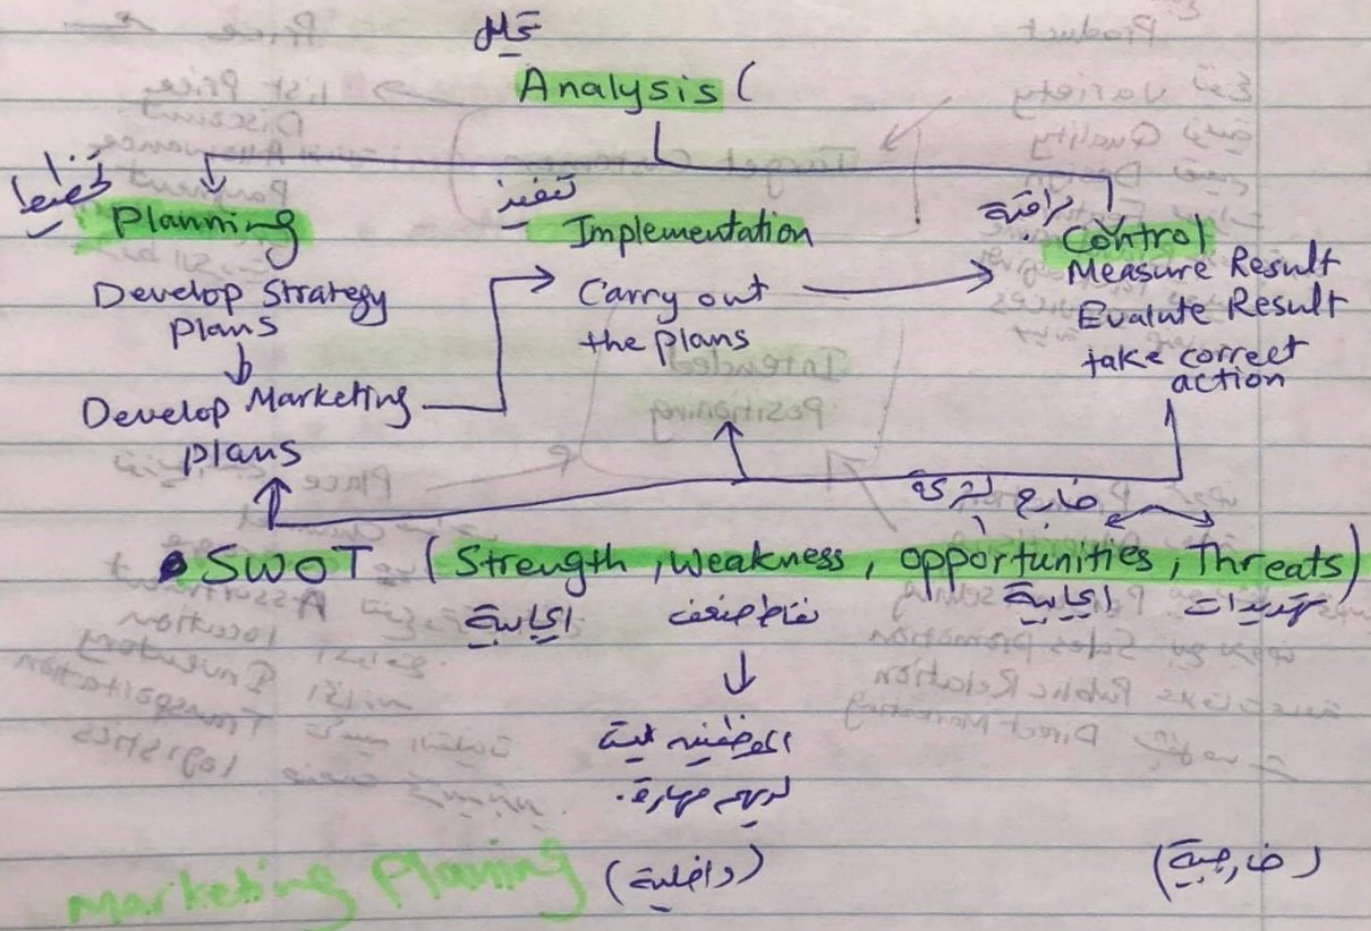 Analysis (
تخطيط
Planning
Develop Strategy
plans
Develop Marketing
plans
تنفيذ
Implementation
Carry out
the plans
مراقبة
Control
Measure Result
Evaluate Result
take correct
action
خارج الشركة
SWOT (Strength, weakness, opportunities, Threats)
ايجابية نقاط ضعف ايجابية تهديدات
لديهم مهارة.
(داخلية) (خارجية)
Marketing Planing